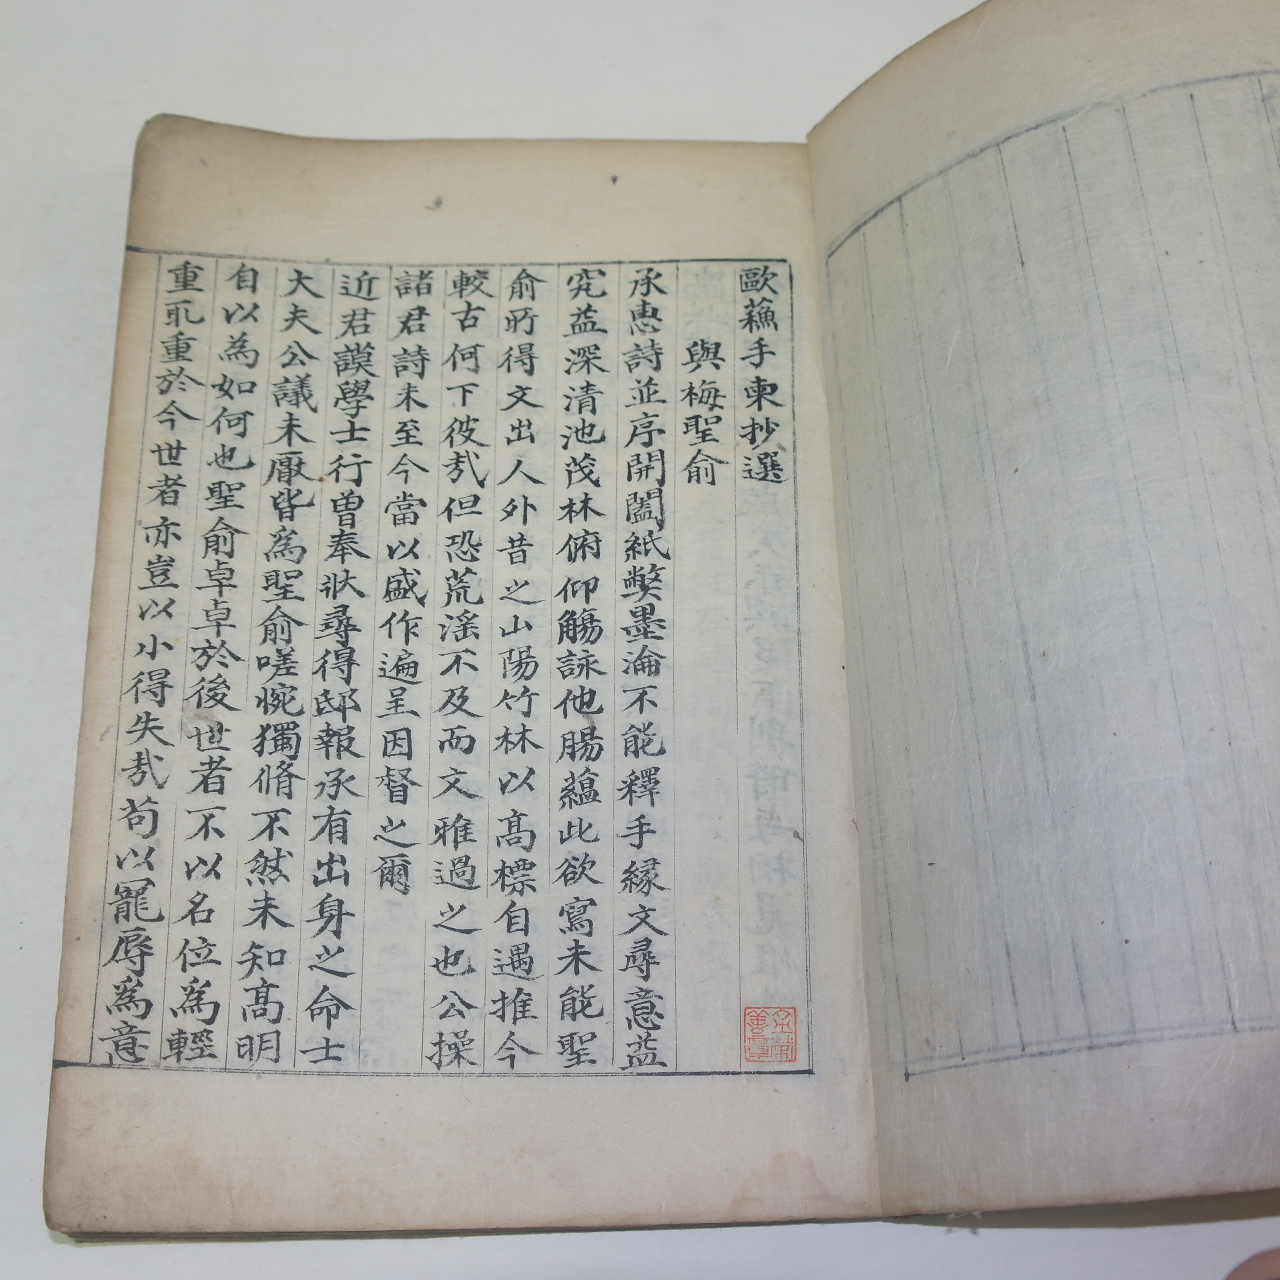 歐蘓手柬抄選
與梅聖俞
承惠詩並序開闔紙弊墨淪不能釋手緣文尋意益
究益深清池茂林俯仰觴詠他腸蘊此欲寫未能聖
俞所得文出人外昔之山陽竹林以髙標自遇推今
較古何下彼㢤但恐荒淫不及而文雅過之也公操
諸君詩未至今當以盛作遍呈因督之爾
近君謨學士行曽奉狀尋得邸報承有出身之命士
大夫公議未厭皆為聖俞嗟惋獨脩不然未知髙明
自以為如何也聖俞卓卓於後世者不以名位為輕
重則重於今世者亦豈以小得失㢤苟以寵辱為意